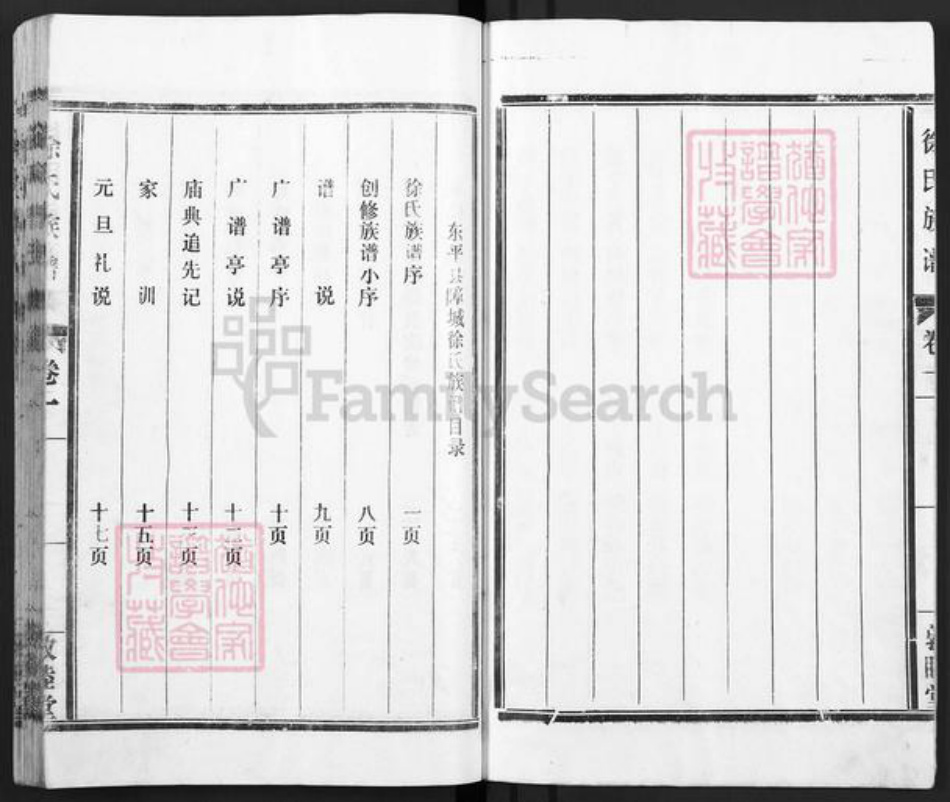 徐氏族谱
卷一
东平县 城徐氏族谱目录
徐氏族谱序 一页
创修族谱小序 八页
谱说 九页
广谱亭序 十页
广谱亭说 十二页
庙典追先记 十三页
家训 十五页
元旦礼说 十七页
徐氏族谱
卷一
敦睦堂
FamilySearch